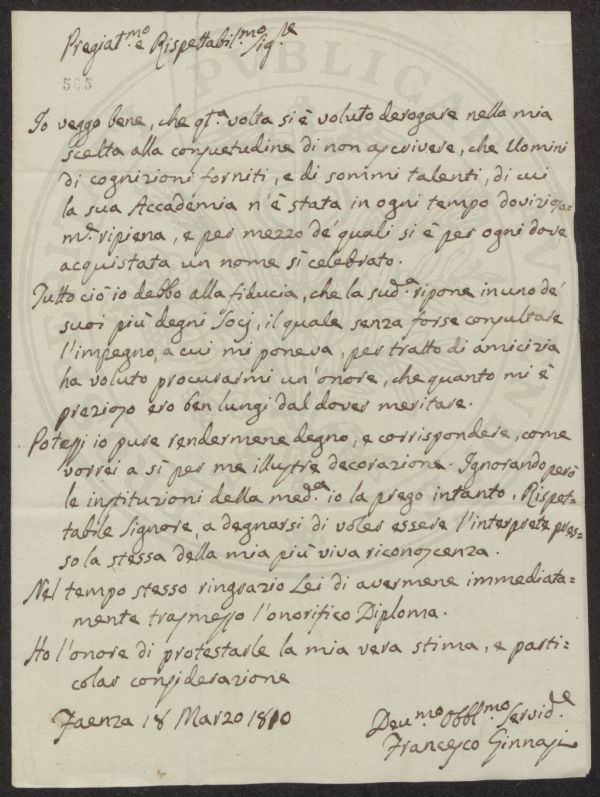 Pregiat.mo e Rispettabil.mo Sig.re
565
Io veggo bene, che qt.a volta si è voluto derogare nella mia
scelta alla consuetudine di non ascrivere, che Uomini
di cognizioni forniti, e di sommi talenti, di cui
la sua Accademia n'è stata in ogni tempo doviziosa=
m.e ripiena, e per mezzo de' quali si è per ogni dove
acquistata un nome sì celebrato.
Tutto ciò io debbo alla fiducia, che la sud.a ripone in uno de'
suoi più degni Socj, il quale senza forse consultare
l'impegno, a cui mi poneva, per tratto di amicizia
ha voluto procurarmi un'onore, che quanto mi è
prezioso ero ben lungi dal dover meritare.
Potessi io pure rendermene degno, e corrispondere, come
vorrei a sì per me illustre decorazione. Ignorando però
le instituzioni della med.a io la prego intanto, Rispet=
tabile Signore, a degnarsi di voler essere l'interprete pres=
so la stessa della mia più viva riconoscenza.
Nel tempo stesso ringrazio Lei di avermene immediata=
mente trasmesso l'onorifico Diploma.
Ho l'onore di protestarle la mia vera stima, e parti=
colar considerazione
Faenza 18 Marzo 1810
Dev.mo Obbl.mo Servid.e
Francesco Ginnasi